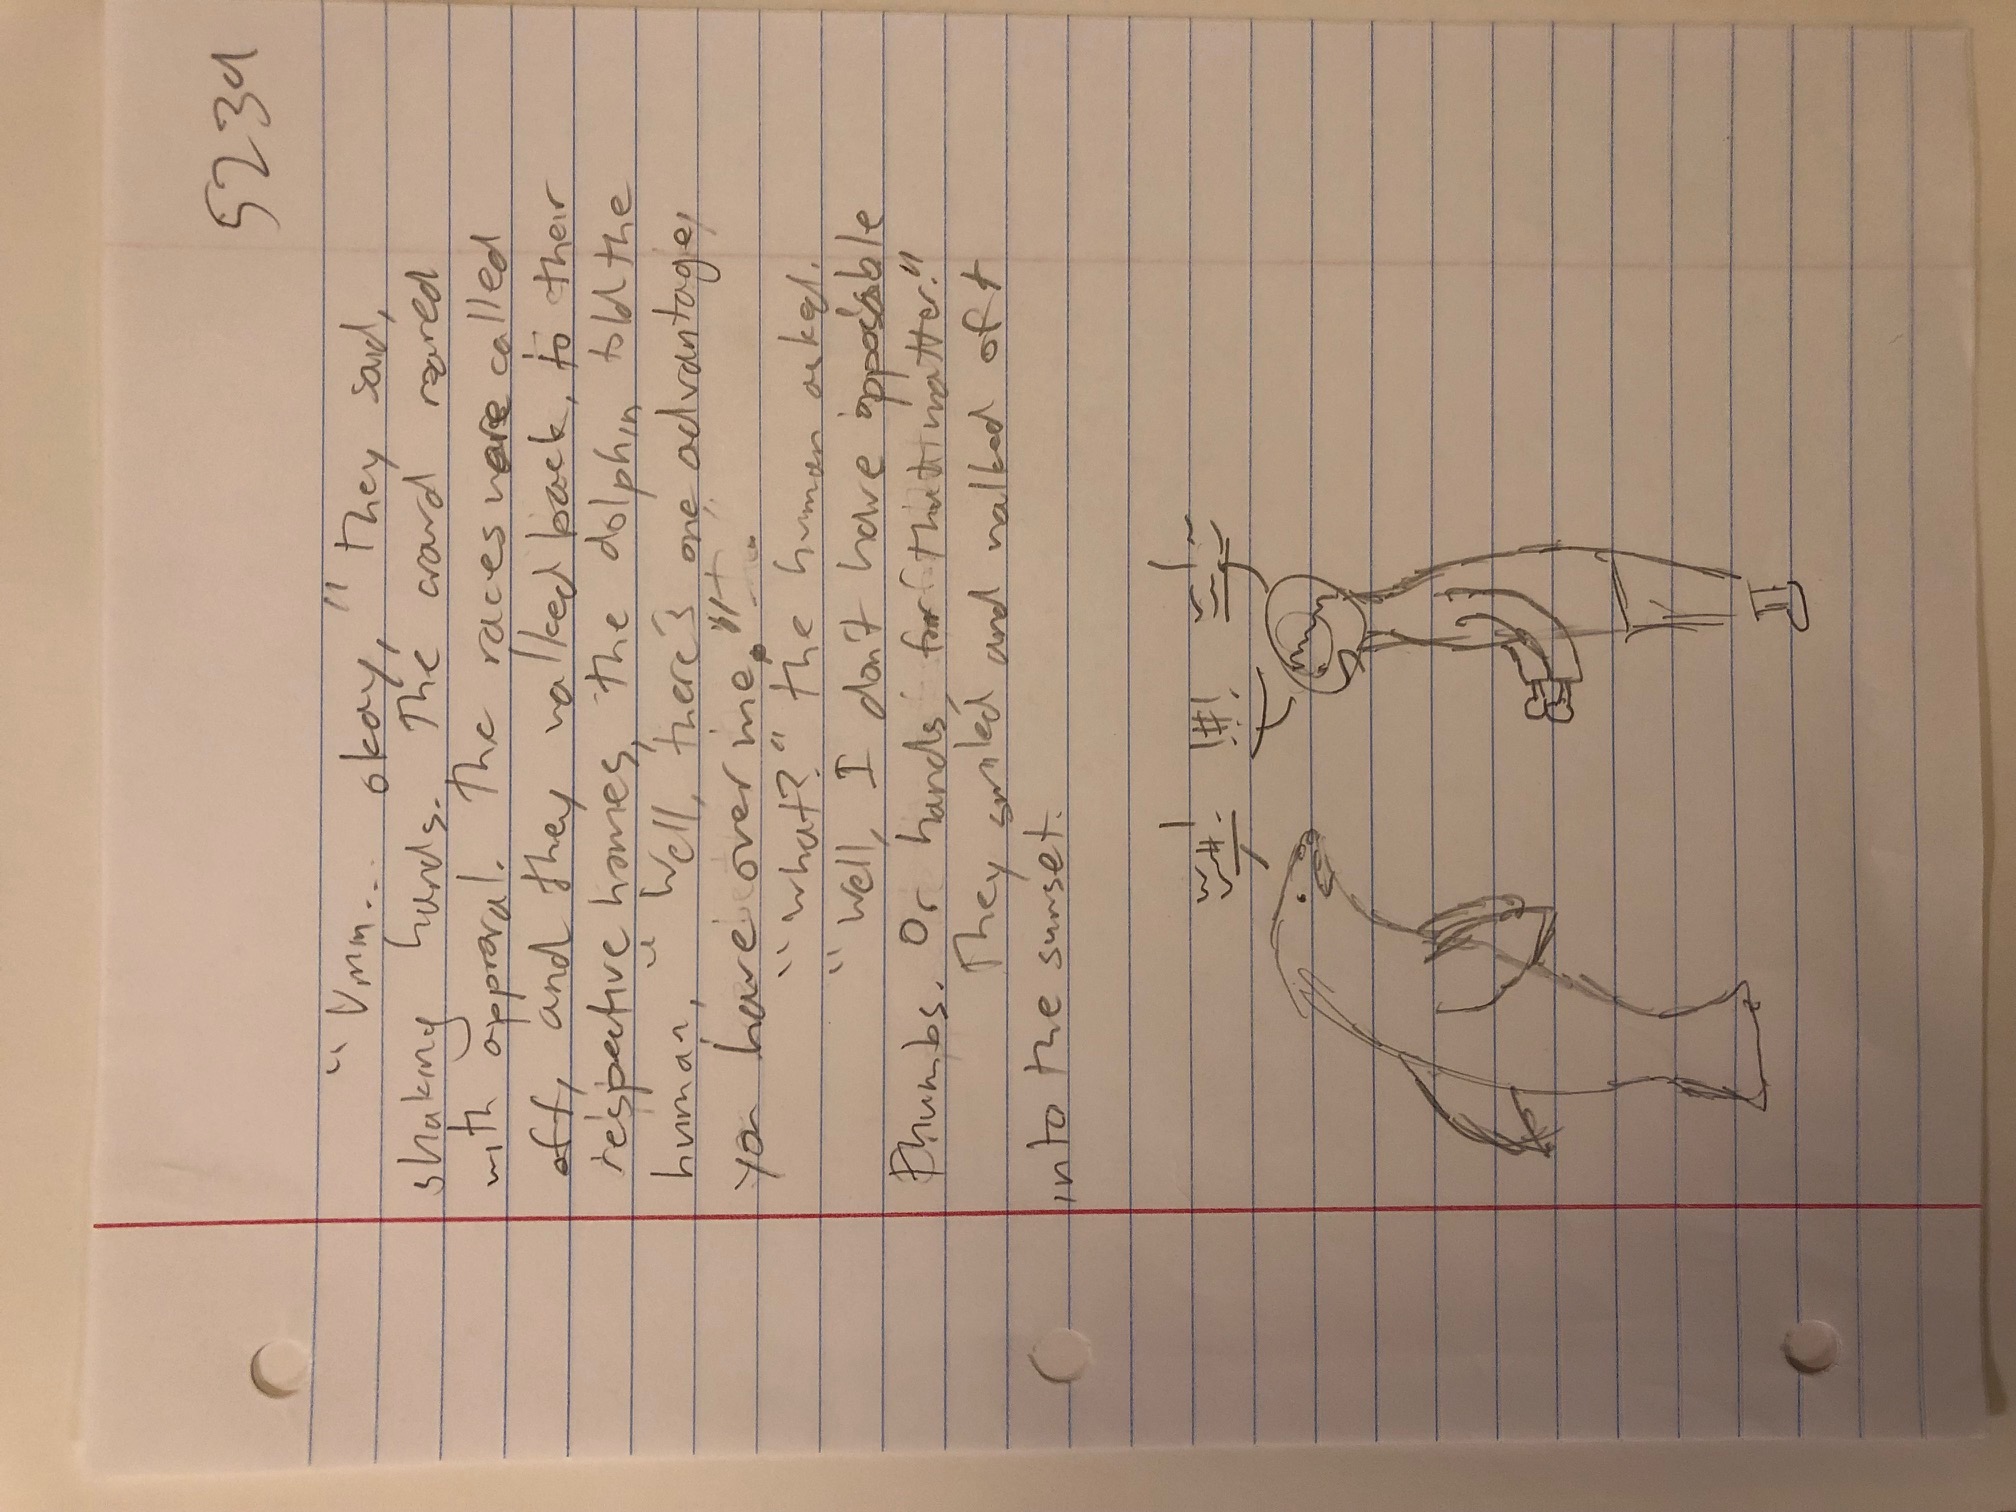 5239
"Umm... okay," they said,
shaking hands. The crowd roared
with approval. The races were called
off, and they walked back, to their
respective homes, the dolphin told the
human, "Well, there's one advantage,
you have over me."
"What?" the human asked.
"Well, I don't have opposable
thumbs. Or hands, for that matter."
They smiled and walked off
into the sunset.
!#!